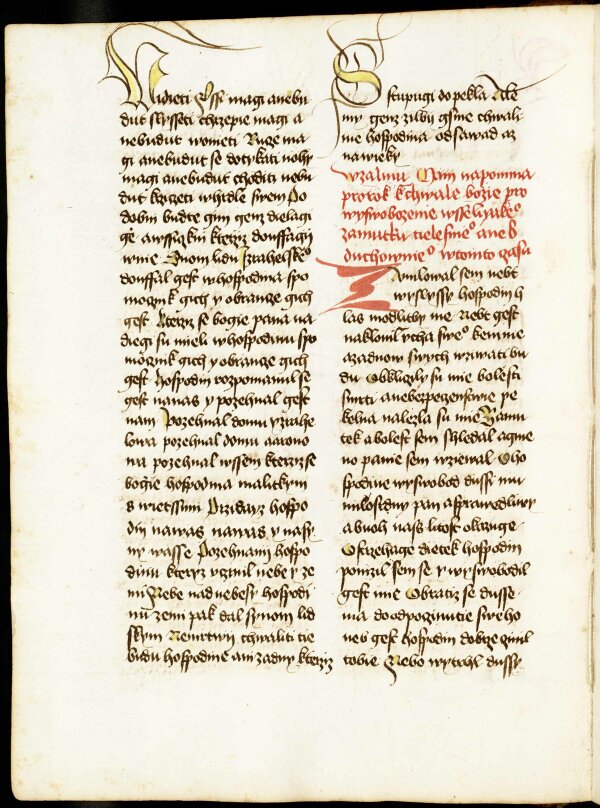 Nudieti Vssi magi anebu
dut slysseti chrzepie magi a
nebudut woniety Ruze ma
gi anebudut se dotykati nohy
magi anebudut choditi nebu
dut krziczeti whrdle swem Po
dobni budte gim genz dielagi
ge awssiczkni kterziz douffagij
wnie Duom lidu Izrahelskeo
douffal gest whospodina spo
mocznik gich y obrancze gich
gest Kterziz se bogie pana na
diegi su mieli whospodinu spo
mocznik gich y obrancze gich
gest Hospodin rozpomanul se
gest nanas y pozehnal gest
nam Pozehnal domu yzrahe
lowa pozehnal domu aarono
wa pozehnal wssem kterziz se
bogie hospodina malitkym
s wietssimi Przidayz hospo
din nawas nawas y nasy
ny wasse Pozehnani hospo
dinu kteryz vczinil nebe y ze
mi Nebe nad nebesy hospodi
nu zemi pak dal synom lid
skym Nemrtwij chwaliti tie
budu hospodine ani zadny kterziz
Stupugi do pekla Ale
my genz ziwy gsme chwali
me hospodina od sawad az
na wieky
w zalmu Nam napomina
prorok k chwale bozie pro
wyswobozenie wsselijakeo
zamutku tielesneo aneb
duchownieo w tomto czasu
Zamilowal sem nebt
wyslyssy hospodin h
las modlitby me Nebt gest
naklonil vcha sweo ke mnie
azadnow swych wzwati bu
du Obkliczily su mie bolesti
smrti anebezpeczenstwie pe
kelna nalezla su mie Zamu
tek abolest sem shledal agme
no panie sem wziewal Oho
spodine wyswobod dussi mu
milostdny pan asprawedliwy
abuoh nass litost okazuge
Ostrzehage dietek hospodin
ponizil sem se y wyswobodil
gest mie Obratiz se dusse
ma do odpoczinutie sweho
nes gest hospodin dobrze czinil
tobie Nebo wytrhl dussy